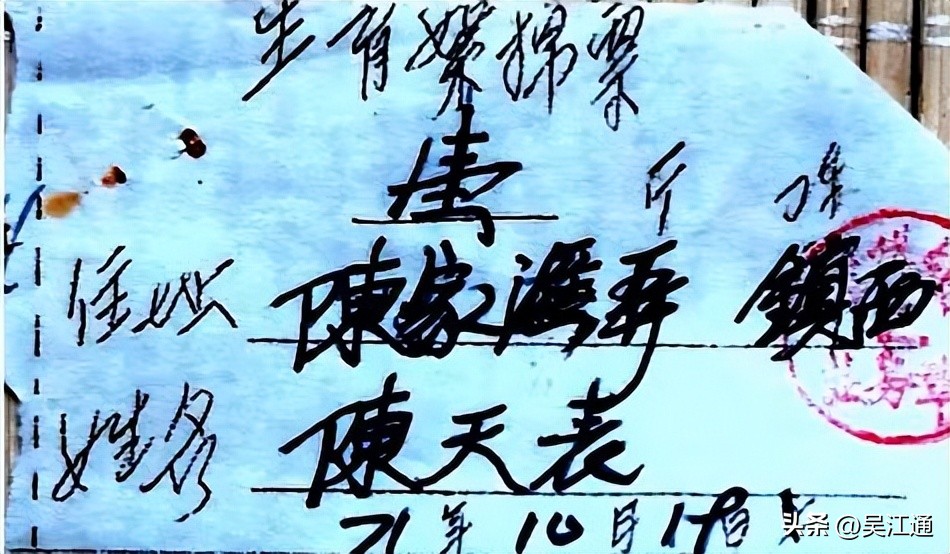 生育媒棉票
壹 斤
住址 陳家灣弄 鎮西
姓名 陳天表
71年10月19日
头条 @吴江通